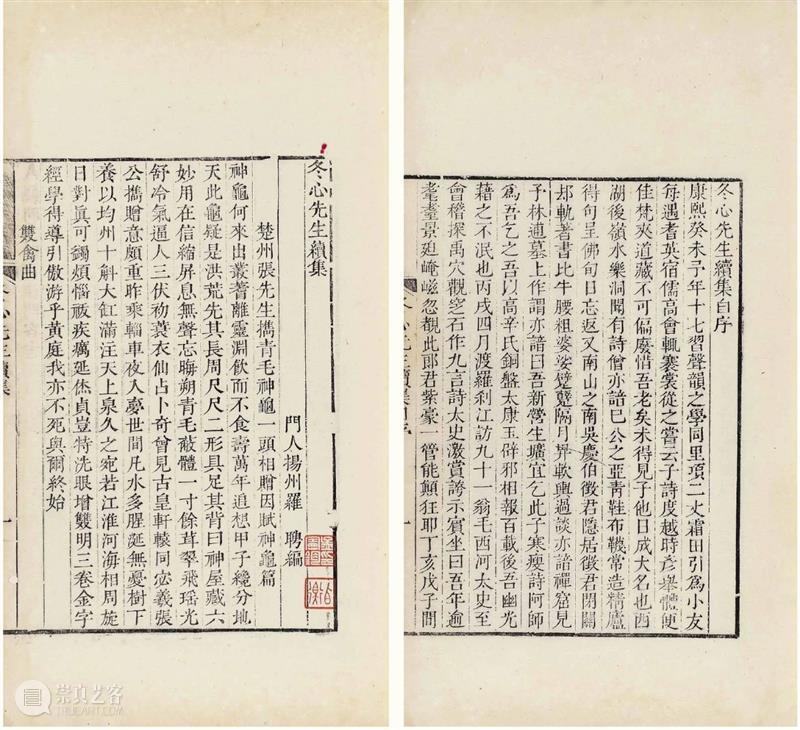 冬心先生續集自序
康熙癸未予年十七習聲韻之學同里項二丈霜田引為小友
每遇耆英宿儒高會輒褰裳從之嘗云子詩度越時彥舉體便
佳梵夾道藏不可偏廢惜吾老矣未得見子他日成大名也西
湖後嶺水樂洞聞有詩僧亦諳巳公之亞青鞋布韈常造精廬
得句呈佛旬日忘返又南山之南吳慶伯徵君隱居徵君閉關
却軌著書比牛腰粗婆娑躄隔月舁軟輿過談亦諳禪窟見
予林逋墓上作謂亦諳曰吾新營生壙宜乞此子寒瘦詩阿師
為吾乞之吾以高辛氏銅盤太康玉辟邪相報百載後吾幽光
藉之不泯也丙戌四月渡羅刹江訪九十一翁毛西河太史至
會稽探禹穴觀窆石作九言詩太史激賞誇示賓坐曰吾年逾
耄耋景廹崦嵫忽覩此郎君紫豪一管能顛狂耶丁亥戊子間
冬心先生續集
門人揚州羅聘編
楚州張先生擕青毛神龜一頭相贈因賦神龜篇
神龜何來出叢蓍離靈淵飲而不食壽萬年追想甲子纔分地
天此龜疑是洪荒先其長周尺尺二形具足其背曰神屋藏六
妙用在信縮屏息無聲忘晦朔青毛㲉體一寸餘茸翠飛瑤光
舒冷氣逼人三伏初蓑衣仙占卜奇曾見古皇軒轅同宓羲張
公擕贈意頗重昨乘輀車夜入夢世間凡水多腥涎無憂樹下
養以均州十斛大缸滿注天上泉久之宛若江淮河海相周旋
日對真可蠲煩惱祓疾癘延烋貞豈特洗眼增雙明三卷金字
經學得導引傲游乎黃庭我亦不死與爾終始
雙禽曲
冬心先生續集
崇真艺客
TRUEART.COM